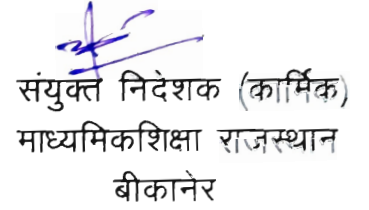 संयुक्त निदेशक (कार्मिक)
माध्यमिकशिक्षा राजस्थान
बीकानेर